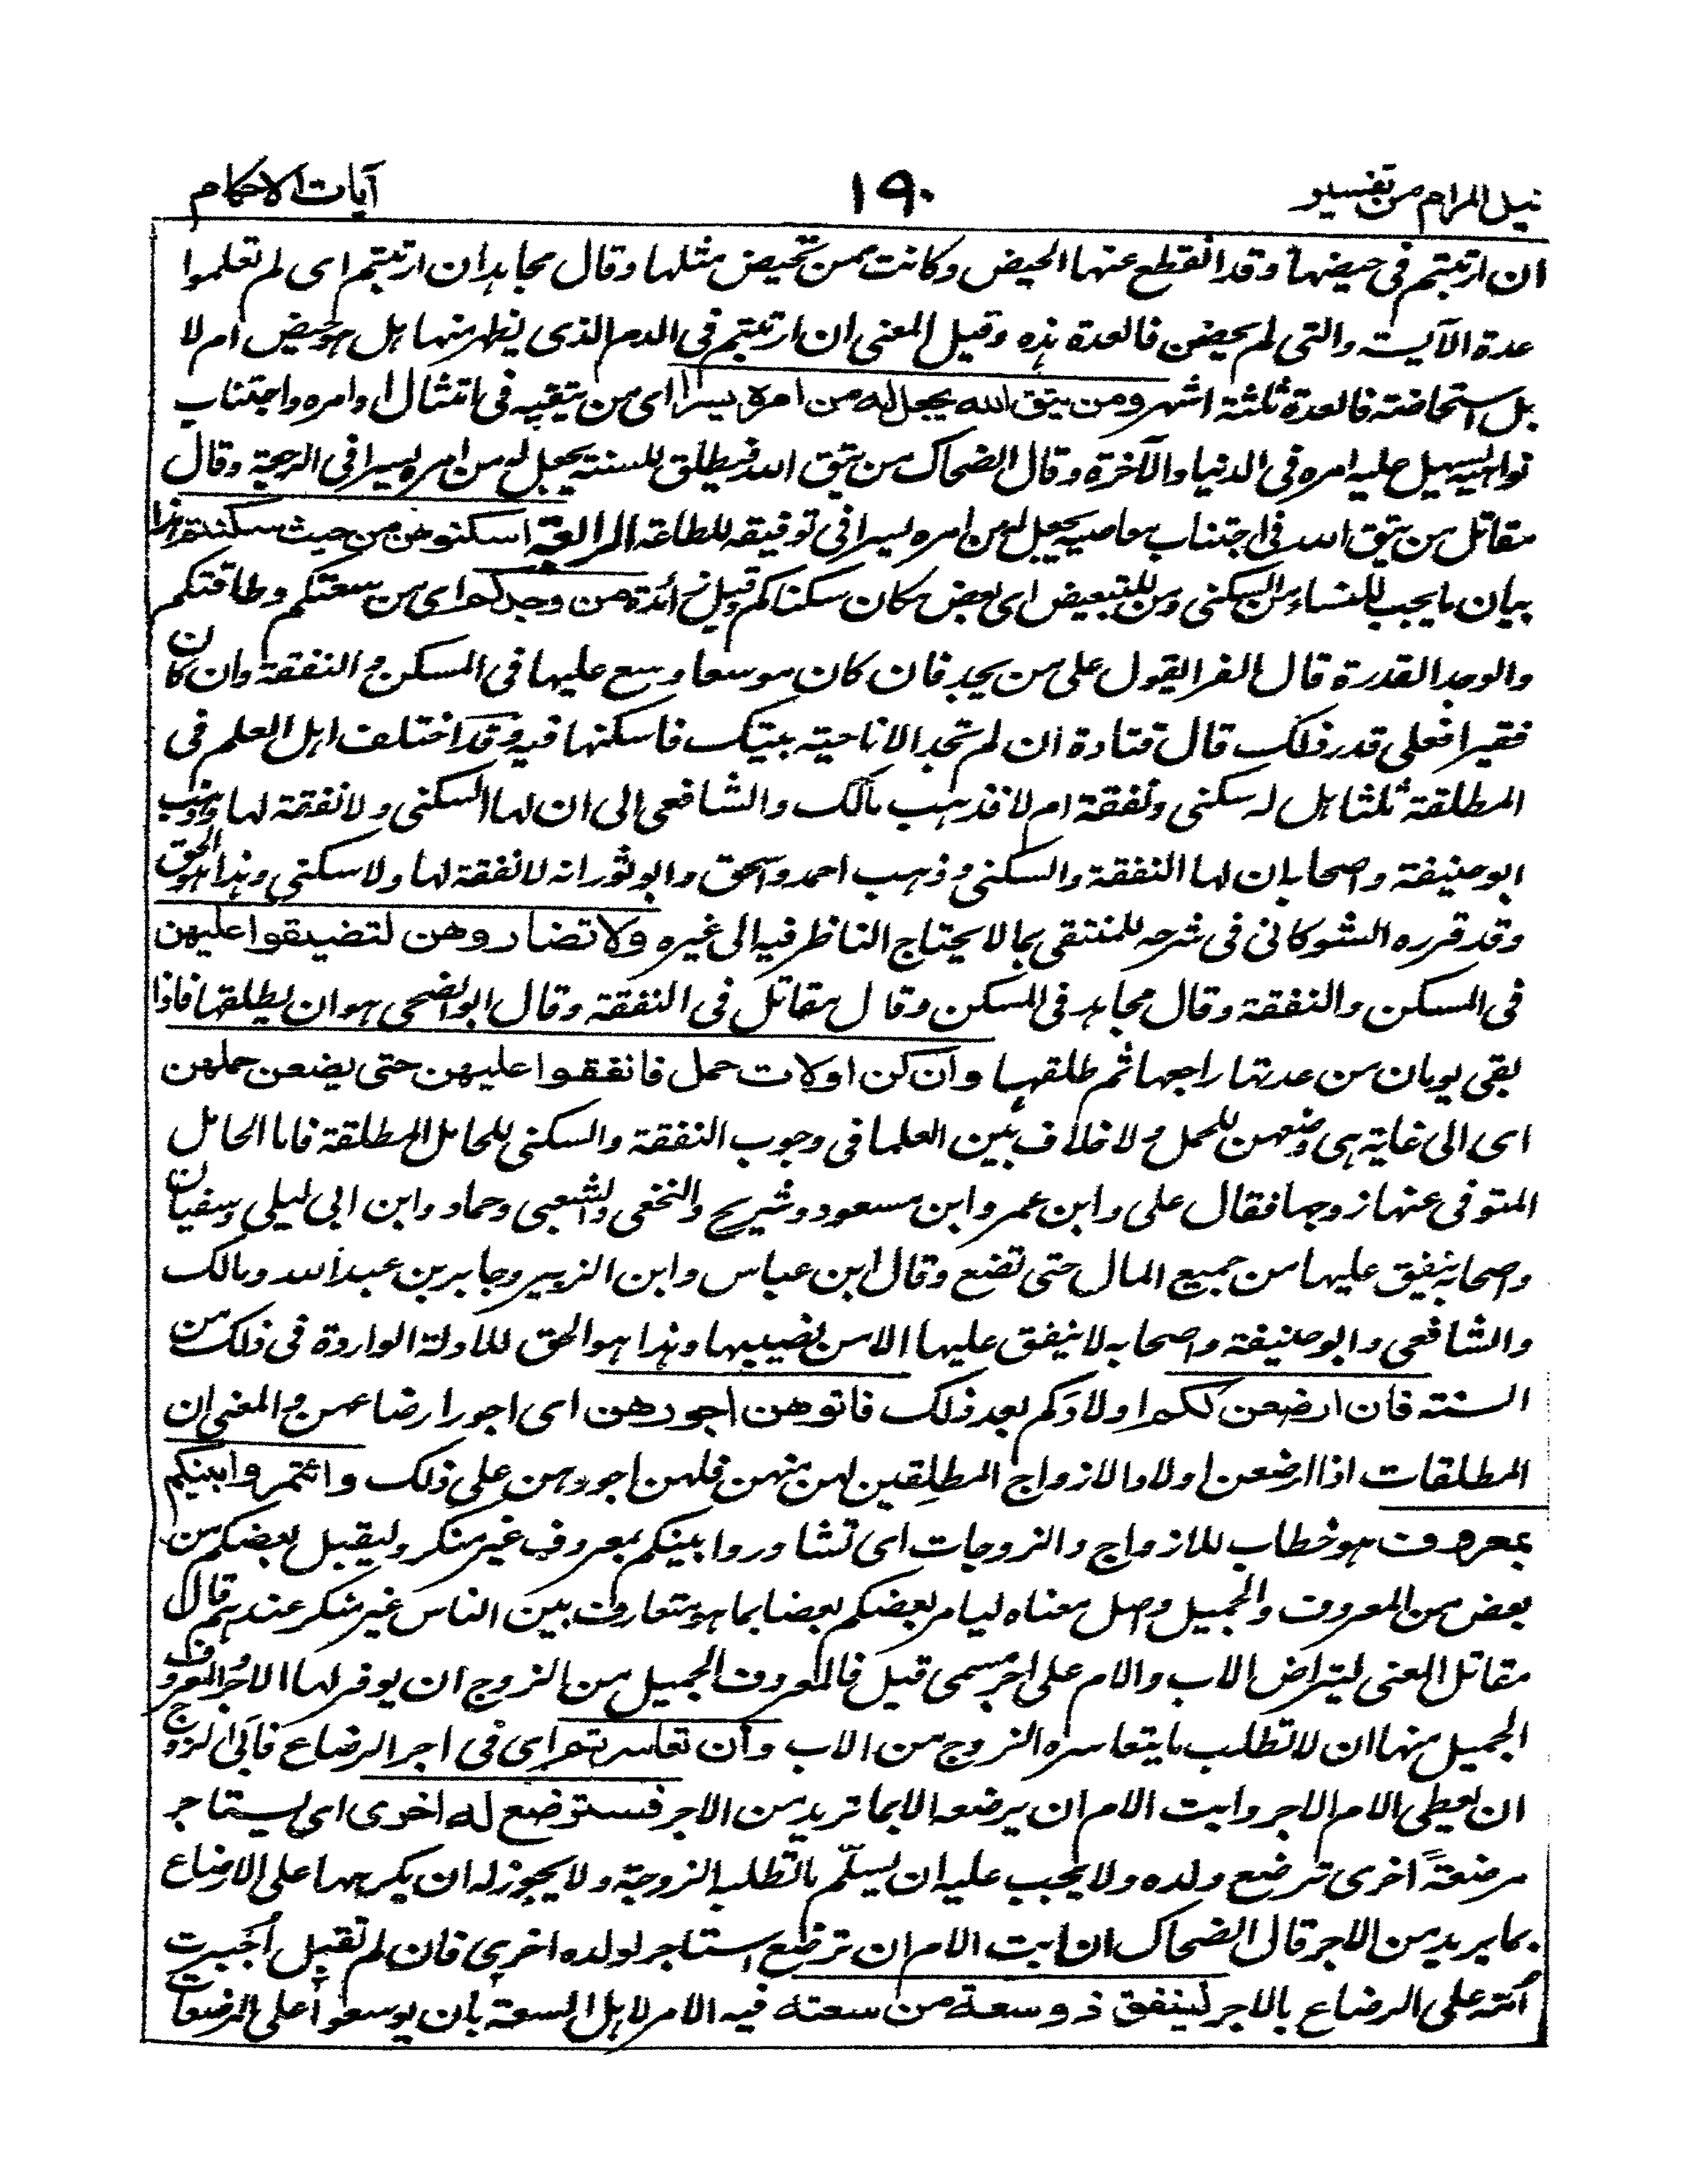 نيل المرام من تفسير ١٩٠ آيات الاحكام
ان ارتبتم فى حيضها وقد انقطع عنها الحيض وكانت ممن تحيض مثلها وقال مجاهد ان ارتبتم اى لم تعلموا
عدة الآيسة والتى لم يحضن فالعدة هذه وقيل المعنى ان ارتبتم فى الدم الذى يظهر منها هل هو حيض ام لا
بل استحاضة فالعدة ثلثة اشهر ومن يتق الله يجعل له من امره يسرا اى من يتقيه فى امتثال اوامره واجتناب
نواهيه يسهل عليه امره فى الدنيا والآخرة وقال الضحاك من يتق الله فيطلق للسنة يجعل له من امره يسرا فى الرجعة وقال
مقاتل من يتق الله فى اجتناب معاصيه يجعل له من امره يسرا فى توفيقه للطاعة الرابعة اسكنوهن من حيث سكنتم هذا
بيان ما يجب للنساء من السكنى ومن للتبعيض اى بعض مكان سكناكم وقيل زائدة من وجدكم اى من سعتكم وطاقتكم
والوجد القدرة قال الفرا يقول على من يجد فان كان موسعا وسع عليها فى المسكن والنفقة وان كان
فقيرا فعلى قدر ذلك قال قتادة ان لم تجد الا ناحية بيتك فاسكنها فيه وقد اختلف اهل العلم فى
المطلقة ثلثا هل له سكنى ونفقة ام لا فذهب مالك والشافعى الى ان لها السكنى ولا نفقة لها وذهب
ابو حنيفة واصحابه ان لها النفقة والسكنى وذهب احمد واسحق وابو ثور انه لا نفقة لها ولا سكنى وهذا هو الحق
وقد قرره الشوكانى فى شرحه للمنتقى بما لا يحتاج الناظر فيه الى غيره ولا تضاروهن لتضيقوا عليهن
فى المسكن والنفقة وقال مجاهد فى المسكن وقال مقاتل فى النفقة وقال ابو الضحى هو ان يطلقها فاذا
بقى يومان من عدتها راجعها ثم طلقها وان كن اولات حمل فانفقوا عليهن حتى يضعن حملهن
اى الى غاية هى وضعهن للحمل ولا خلاف بين العلما فى وجوب النفقة والسكنى للحامل المطلقة فاما الحامل
المتوفى عنها زوجها فقال على وابن عمر وابن مسعود وشريح والنخعى والشعبى وحماد وابن ابى ليلى وسفيان
واصحابه ينفق عليها من جميع المال حتى تضع وقال ابن عباس وابن الزبير وجابر بن عبد الله ومالك
والشافعى وابو حنيفة واصحابه لا ينفق عليها الا من نصيبها وهذا هو الحق للادلة الواردة فى ذلك من
السنة فان ارضعن لكم اولادكم بعد ذلك فاتوهن اجورهن اى اجور ارضاعهن والمعنى ان
المطلقات اذا ارضعن اولاد الازواج المطلقين لهن منهن فلهن اجورهن على ذلك وائتمروا بينكم
بمعروف هو خطاب للازواج والزوجات اى تشاوروا بينكم بمعروف غير منكر وليقبل بعضكم من
بعض من المعروف والجميل واصل معناه ليامر بعضكم بعضا بما هو متعارف بين الناس غير منكر عندهم قال
مقاتل المعنى ليتراض الاب والام على اجر مسمى قيل فالمعروف الجميل من الزوج ان يوفر لها الاجر والمعروف
الجميل منها ان لا تطلب ما يتعاسره الزوج من الاب وان تعاسرتم اى فى اجر الرضاع فابى الزوج
ان يعطى الام الاجر وابت الام ان يرضعه الا بما تريد من الاجر فسترضع له اخرى اى يستاجر
مرضعةً اخرى ترضع ولده ولا يجب عليه ان يسلّم ما تطلبه الزوجة ولا يجوز له ان يكرهها على الارضاع
بما يريد من الاجر قال الضحاك ان ابت الام ان ترضع استاجر لولده اخرى فان لم تقبل اُجبرت
اُمّه على الرضاع بالاجر لينفق ذو سعة من سعته فيه الامر لاهل السعة بان يوسعوا على المرضعات